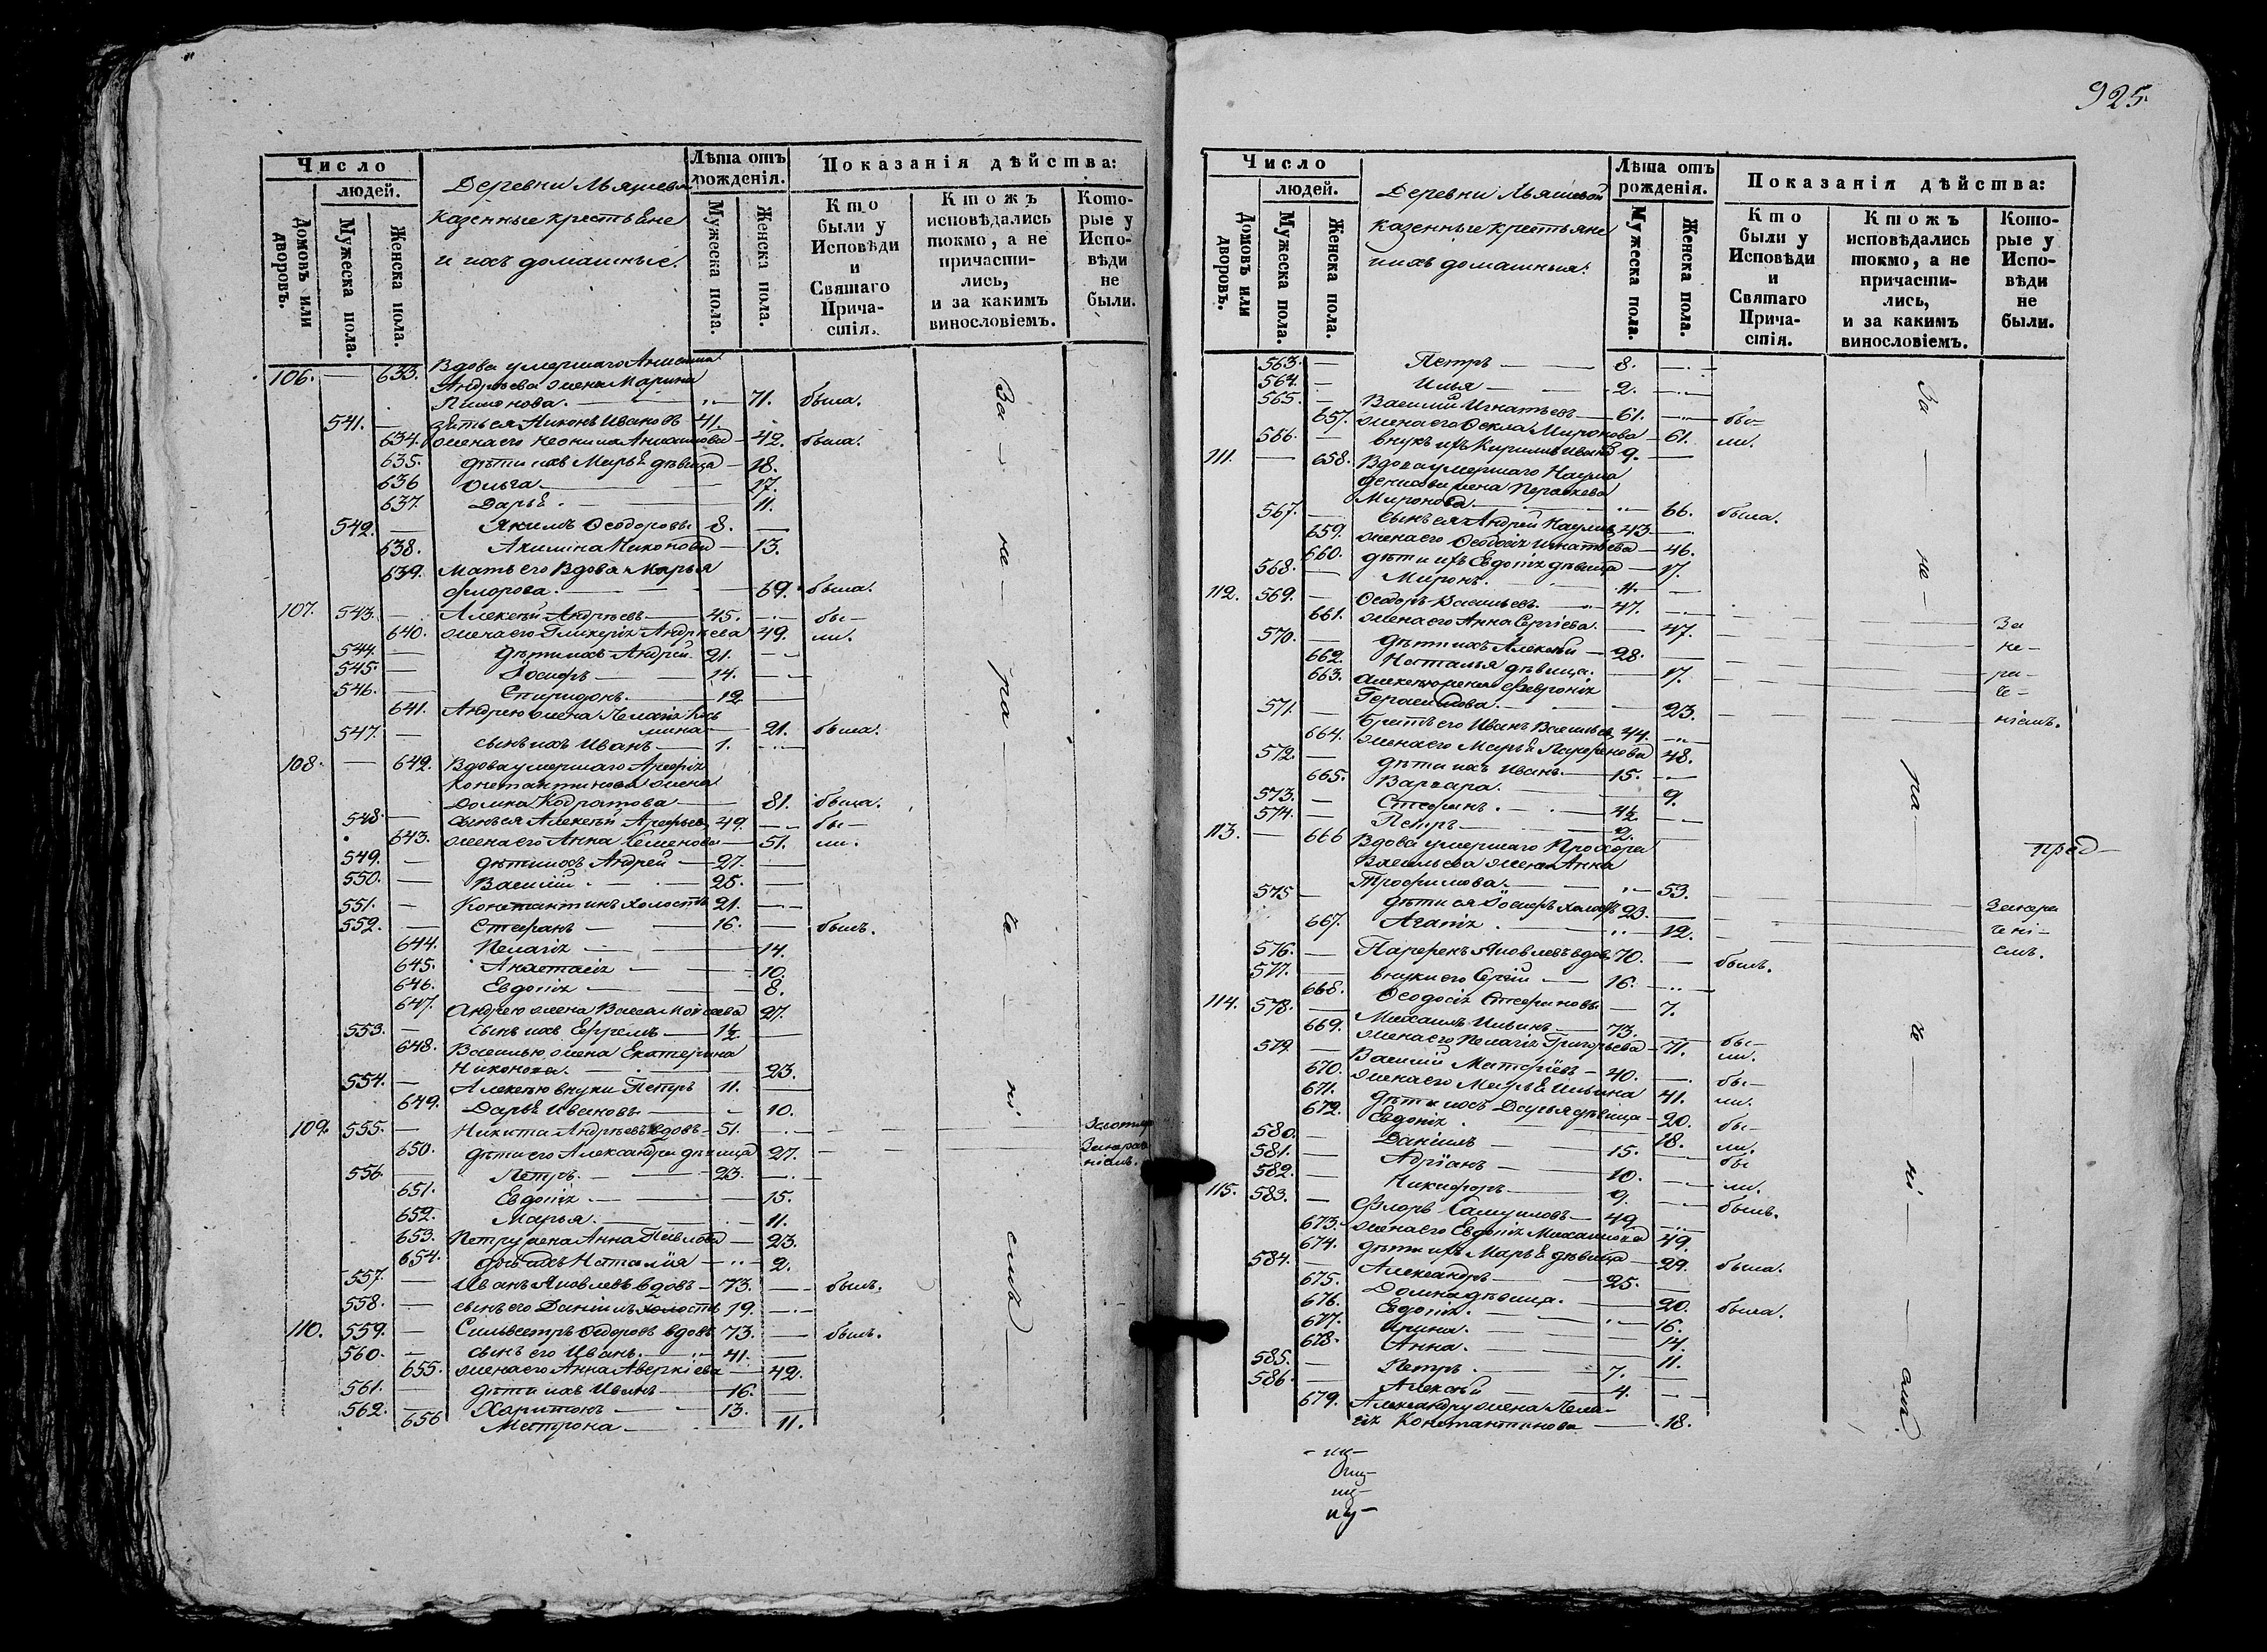 925.
Число
людей.
Домовъ или дворовъ.
Мужеска пола.
Женска пола.
Деревни Льяшевой
казенные крестьяне
и ихъ домашные.
Лѣта отъ рожденія.
Мужеска пола.
Женска пола.
Показанія дѣйства:
Кто были у Исповѣди и Святаго Причастія.
Ктожъ исповѣдались токмо, а не причастились, и за какимъ винословіемъ.
Которые у Исповѣди не были.
106. — 633. Вдова умершаго
Андрѣева жена Марина
Пимонова. — 71. была.
541. — зять ея Никонъ Ивановъ 41.
634. жена его Неонила — 42. была.
635. дѣти ихъ Марья дѣвица — 18.
636 Ольга — 17.
637. Дарья — 11.
542. — Якимъ Ѳеодоровъ 8. —
638. Акилина Никонова — 13.
639. Мать его Вдова Марья
Флорова. — 69. была.
107. 543. — Алексѣй Андрѣевъ — 45. — бы-
640. жена его Гликерія Андрѣева 49. ли.
544. — дѣти ихъ Андрей 21. —
545. — Іосифъ — 14. —
546. — Спиридонъ — 12 —
641. Андрею жена Пелагія Кось
мина — 21. была.
547. — сынъ ихъ Иванъ — 1. —
108. — 642. Вдова умершаго Арефія
Константинова жена
Домна Кодратова — 81. была.
548. — сынъ ея Алексѣй Арефьев 49. — бы-
643. жена его Анна Семенова — 51. ли.
549. — дѣти ихъ Андрей — 27. —
550. — Василій — 25. —
551. — Константинъ холостъ 21. —
552. — Стефанъ — 16. — былъ.
644. Пелагія — 14.
645. Анастасія — 10.
646. Евдокія — 8.
647. Андрею жена Васса Моисеева 27.
553. — сынъ ихъ Ефремъ — 1½ —
648. Василью жена Екатерина
Никонова. — 23.
554. — Алексѣю внуки Петръ 11. —
649. Дарья Ивановы — 10.
109. 555. — Никита Андрѣевъ вдовъ — 51. —
650. дѣти его Александра дѣвица 27. —
556. — Петръ. — 23. —
651. Евдокія — 15.
652. Марья. — 11.
653. Петру жена Анна Павлова — 23.
654. дочь ихъ Наталія — 2.
557. — Иванъ Яковлевъ вдовъ — 73. — былъ.
558. — сынъ его Даніилъ холостъ 19. —
110. 559. — Сильвестръ Ѳедоровъ вдовъ 73. — былъ.
560. — сынъ его Иванъ. — 41. —
655. жена его Анна Аверкіева — 42.
561. — дѣти ихъ Иванъ — 16. —
562. — Харитонъ — 13. —
656 Матрона — 11.
За — не — ра — че — ні — емъ
Число
людей.
Домовъ или дворовъ.
Мужеска пола.
Женска пола.
Деревни Льяшевой
казенные крестьяне
и ихъ домашныя.
Лѣта отъ рожденія.
Мужеска пола.
Женска пола.
Показанія дѣйства:
Кто были у Исповѣди и Святаго Причастія.
Ктожъ исповѣдались токмо, а не причастились, и за какимъ винословіемъ.
Которые у Исповѣди не были.
563. — Петръ — 8. —
564. — Илья — 2. —
565. — Василій Игнатьевъ — 61. — бы-
657. жена его Ѳекла Миронова — 61. ли.
566. — внукъ ихъ Кирилъ 9. —
111. — 658. Вдова умершаго Наума
жена Параскева
Миронова — 66. была.
567. — сынъ ея Андрей Наумов 43. —
659. жена его Ѳеодосія Игнатьева — 46.
660. дѣти ихъ Евдокія дѣвица — 17.
568. — Миронъ. — 11. —
112. 569. — Ѳеодоръ Васильевъ. — 47. —
661. жена его Анна Сергіева. — 47. — За
570. — дѣти ихъ Алексѣй — 28. — не-
662. Наталья дѣвица. — 17. — ра-
663. Алексѣю жена Февронія че-
Герасимова. — 23. — ніемъ.
571. — Братъ его Иванъ Васильев 44. —
664. жена его Марья Парфенова 48.
572. — дѣти ихъ Иванъ. — 15. —
665. Варвара. — 9.
573. — Стефанъ. — 4½ —
574. — Петръ — 2. —
113. — 666 Вдова умершаго Прохора
Васильева жена Анна
Трофимова. — 53. —
575 — дѣти ея Іосифъ холостъ 23. —
667. Агапія — 12. —
576. — Парфенъ Яковлевъ вдовъ 70. — былъ.
577. — внуки его Сергій — 16. —
668. Ѳеодосія Стефановы — 7.
114. 578. — Михаилъ Ильинъ — 73. — бы-
669. жена его Пелагія Григорьева — 71. ли.
579. — Василій — 40. — бы-
670. жена его Марья Ильина 41. ли.
671. дѣти ихъ Дарья дѣвица — 20. бы-
672. Евдокія — 18. ли.
580. — Даніилъ — 15. — бы
581. — Адріанъ — 10. — ли.
582. — Никифоръ — 9. —
115. 583. — Флоръ Самуиловъ — 49. — былъ.
673. жена его Евдокія Михайлова 49.
674. дѣти ихъ Марья дѣвица — 29. была.
584. — Александръ — 25. —
675. Домна дѣвица. — 20. была.
676. Евдокія. — 16.
677. Ирина. — 14.
678. Анна. — 11.
585. — Петръ. — 7. —
586. — Алексѣй — 4. —
679. Александру жена Пела-
гія Константинова — 18.
За — не — ра — че — ні — емъ.